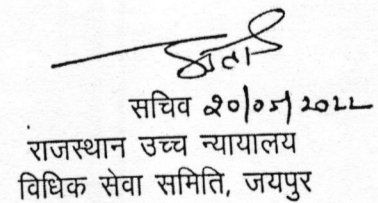 सचिव 20/05/2022
राजस्थान उच्च न्यायालय
विधिक सेवा समिति, जयपुर